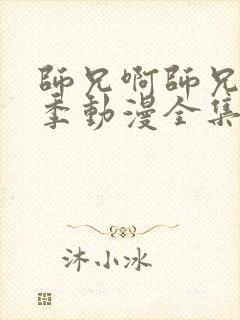 師兄啊師兄
季動漫全集
沐小冰